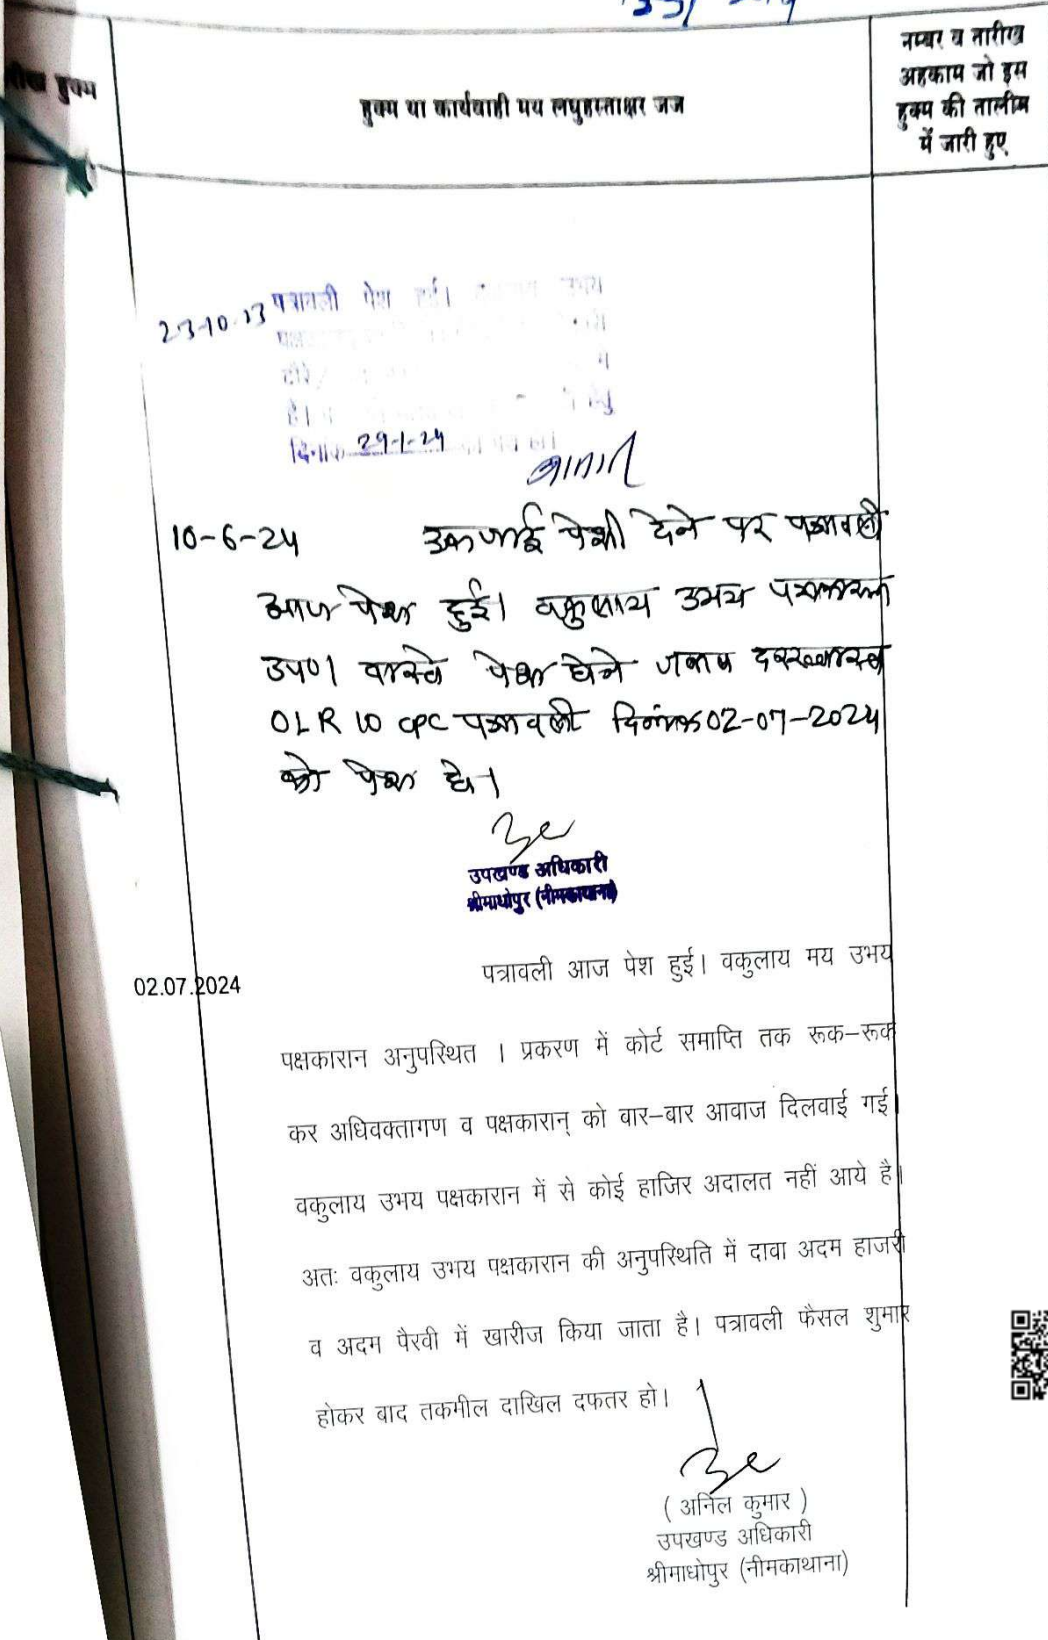 हुक्म
हुक्म या कार्यवाही मय लघुहस्ताक्षर जज
नम्बर व तारीख
अहकाम जो इस
हुक्म की तालीम
में जारी हुए
23-10-23 पत्रावली पेश हुई। उभय
है।
दिनांक 29-1-24
10-6-24 पेशी देने पर पत्रावली
आज पेश हुई। वकुलाय उभय पक्षकारान
उप०। वास्ते पेश होने जवाब दरख्वास्त
OLR 10 CPC पत्रावली दिनांक 02-07-2024
को पेश हो।
उपखण्ड अधिकारी
श्रीमाधोपुर (नीमकाथाना)
02.07.2024 पत्रावली आज पेश हुई। वकुलाय मय उभय
पक्षकारान अनुपस्थित । प्रकरण में कोर्ट समाप्ति तक रूक–रूक
कर अधिवक्तागण व पक्षकारान् को बार–बार आवाज दिलवाई गई।
वकुलाय उभय पक्षकारान में से कोई हाजिर अदालत नहीं आये है।
अतः वकुलाय उभय पक्षकारान की अनुपस्थिति में दावा अदम हाजरी
व अदम पैरवी में खारीज किया जाता है। पत्रावली फैसल शुमार
होकर बाद तकमील दाखिल दफतर हो।
( अनिल कुमार )
उपखण्ड अधिकारी
श्रीमाधोपुर (नीमकाथाना)